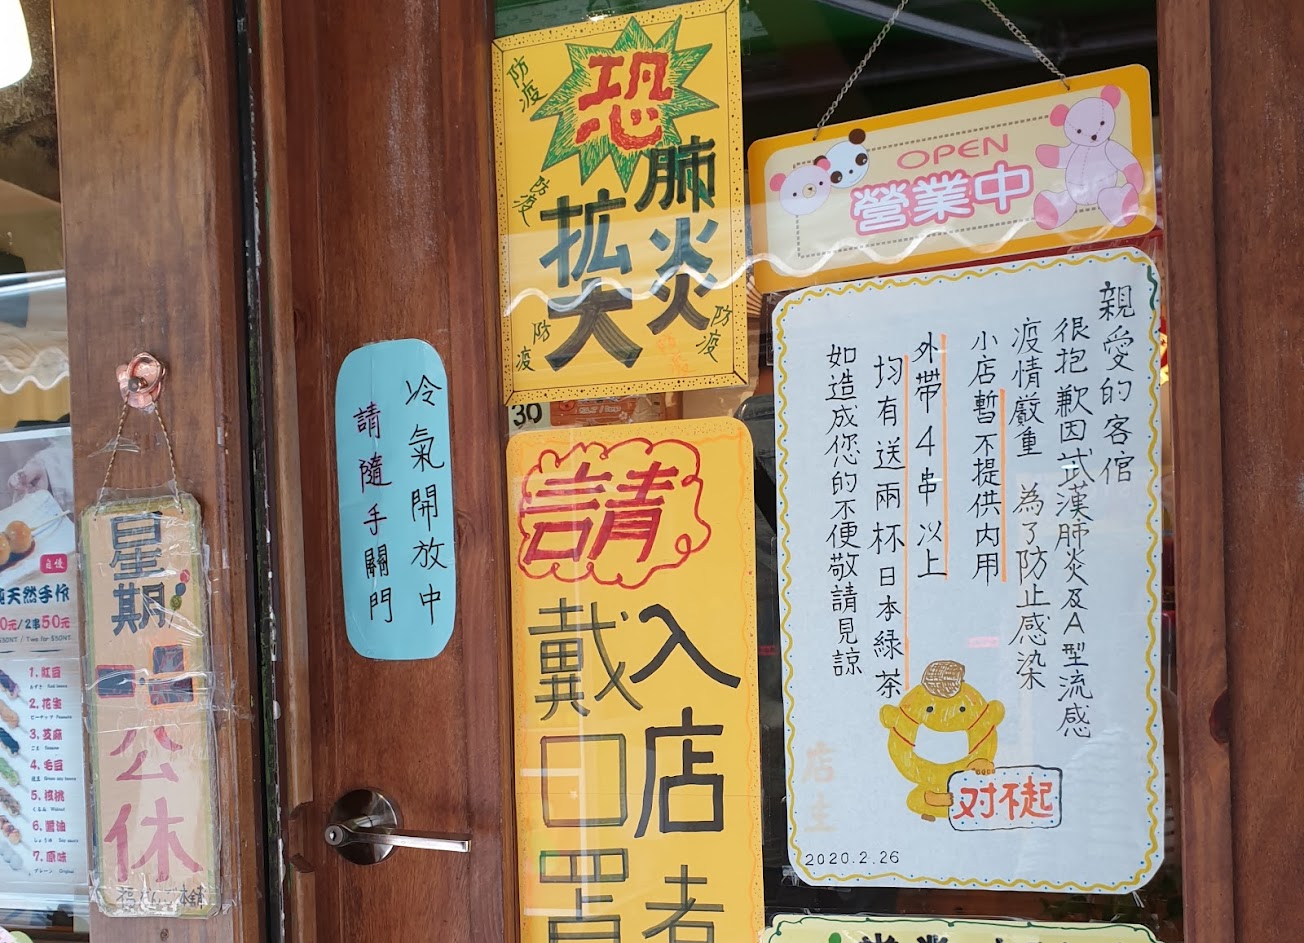 恐
肺炎
拡大
防疫
防疫
防疫
防疫
OPEN
營業中
親愛的客倌
很抱歉因武漢肺炎及A型流感
疫情嚴重 為了防止感染
小店暫不提供內用
外帶4串以上
均有送兩杯日本綠茶
如造成您的不便敬請見諒
店主
2020.2.26
对不起
30
請
入店者
戴口罩
冷氣開放中
請隨手關門
星期
公休
天然手作
0元/2串50元
1.紅豆
2.花生
3.芝麻
4.毛豆
5.核桃
6.醬油
7.原味